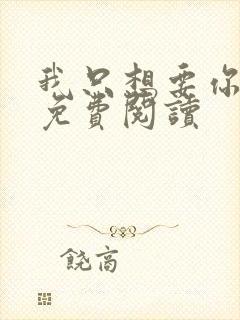 我只想要你
免費閱讀
饒高